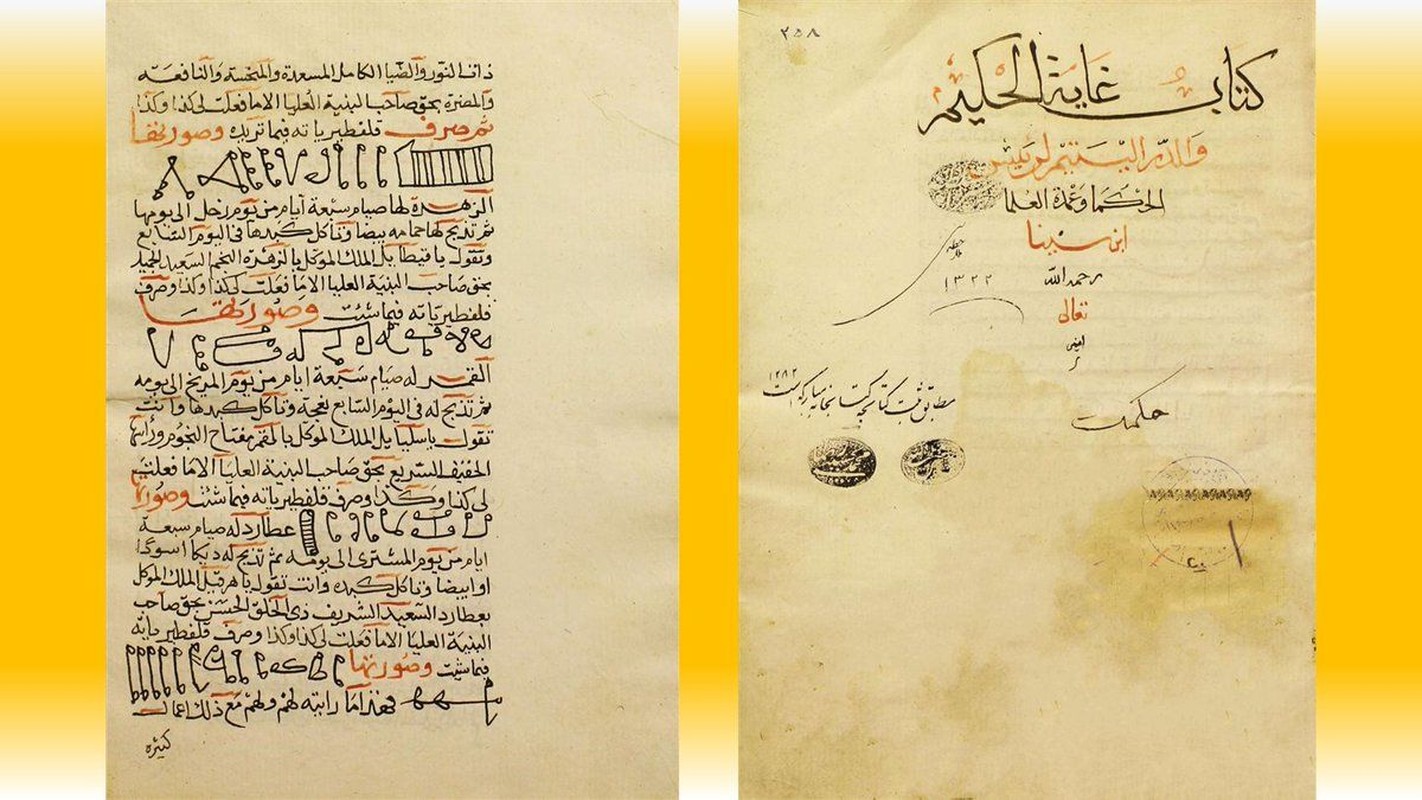 ٢٥٨
كتاب غاية الحكيم
والدر اليتيم لرئيس
الحكما وعمدة العلما
ابن سينا
رحمه الله
تعالى
١٣٢٢
حكمت
١٢٨٢
ذات النور والضيا الكامل المسعدة والمنحسة والنافعة
والمضرة بحق صاحب البنية العليا الا ما فعلت لي كذا وكذا
ثم صرف قلفطيرياته فيما تريده وصورتها
الزهرة لها صيام سبعة ايام من يوم زحل الى يومها
ثم تذبح لها حمامه بيضا وتاكل كبدها في اليوم السابع
وتقول يا بيل الملك الموكل بالزهرة النجم السعيد
بحق صاحب البنية العليا الا ما فعلت لي كذا وكذا وصرف
قلفطيرياته فيما شئت وصورتها
القمر له صيام سبعة ايام من يوم المريخ الى يومه
ثم تذبح له في اليوم السابع نعجة وتاكل كبدها وانت
تقول يا سليابيل الملك الموكل بالقمر مفتاح النجوم
الخفيف السريع بحق صاحب البنية العليا الا ما فعلت
لي كذا وكذا وصرف قلفطيرياته فيما شئت وصورتها
عطارد له صيام سبعة
ايام من يوم المشترى الى يومه ثم تذبح له ديكا اسودا
او ابيضا وتاكل كبده وانت تقول يا هرقيل الملك الموكل
بعطارد السعيد الشريف ذي الخلق الحسن بحق صاحب
البنية العليا الا ما فعلت لي كذا وكذا وصرف قلفطيرياته
فيما شئت وصورتها
فهذا ما رايته لهم ولهم مع ذلك اعمال
كثيره